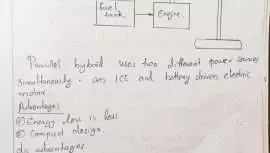 Fuel
tank
Engine.
Parallel hybrid uses two different power sources
simultaneously. an ICE and battery driven electric
motor
Advantages
① Energy loss is less
② Compact design.
dis advantages.